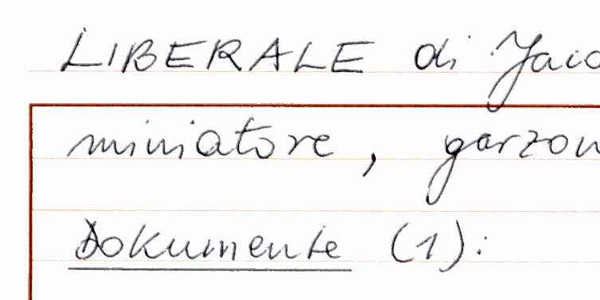 LIBERALE di Jaco
miniatore, garzon
Dokumente (1):